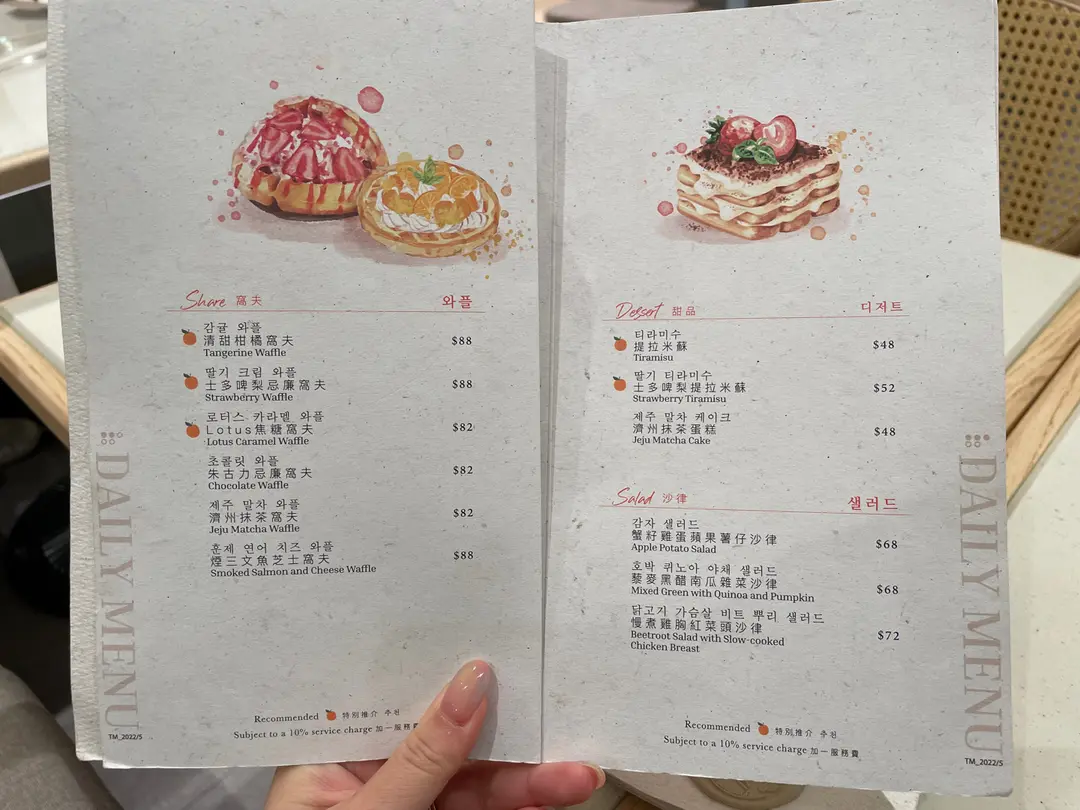 Share 窩夫 와플
감귤 와플
清甜柑橘窩夫 $88
Tangerine Waffle
딸기 크림 와플
士多啤梨忌廉窩夫 $88
Strawberry Waffle
로터스 카라멜 와플
Lotus焦糖窩夫 $82
Lotus Caramel Waffle
초콜릿 와플
朱古力忌廉窩夫 $82
Chocolate Waffle
제주 말차 와플
濟州抹茶窩夫 $82
Jeju Matcha Waffle
훈제 연어 치즈 와플
煙三文魚芝士窩夫 $88
Smoked Salmon and Cheese Waffle
Recommended 特別推介 추천
Subject to a 10% service charge 加一服務費
TM_2022/5
DAILY MENU
Dessert 甜品 디저트
티라미수
提拉米蘇 $48
Tiramisu
딸기 티라미수
士多啤梨提拉米蘇 $52
Strawberry Tiramisu
제주 말차 케이크
濟州抹茶蛋糕 $48
Jeju Matcha Cake
Salad 沙律 샐러드
감자 샐러드
蟹籽雞蛋蘋果薯仔沙律 $68
Apple Potato Salad
호박 퀴노아 야채 샐러드
藜麥黑醋南瓜雜菜沙律 $68
Mixed Green with Quinoa and Pumpkin
닭고기 가슴살 비트 뿌리 샐러드
慢煮雞胸紅菜頭沙律 $72
Beetroot Salad with Slow-cooked
Chicken Breast
Recommended 特別推介 추천
Subject to a 10% service charge 加一服務費
TM_2022/5
DAILY MENU